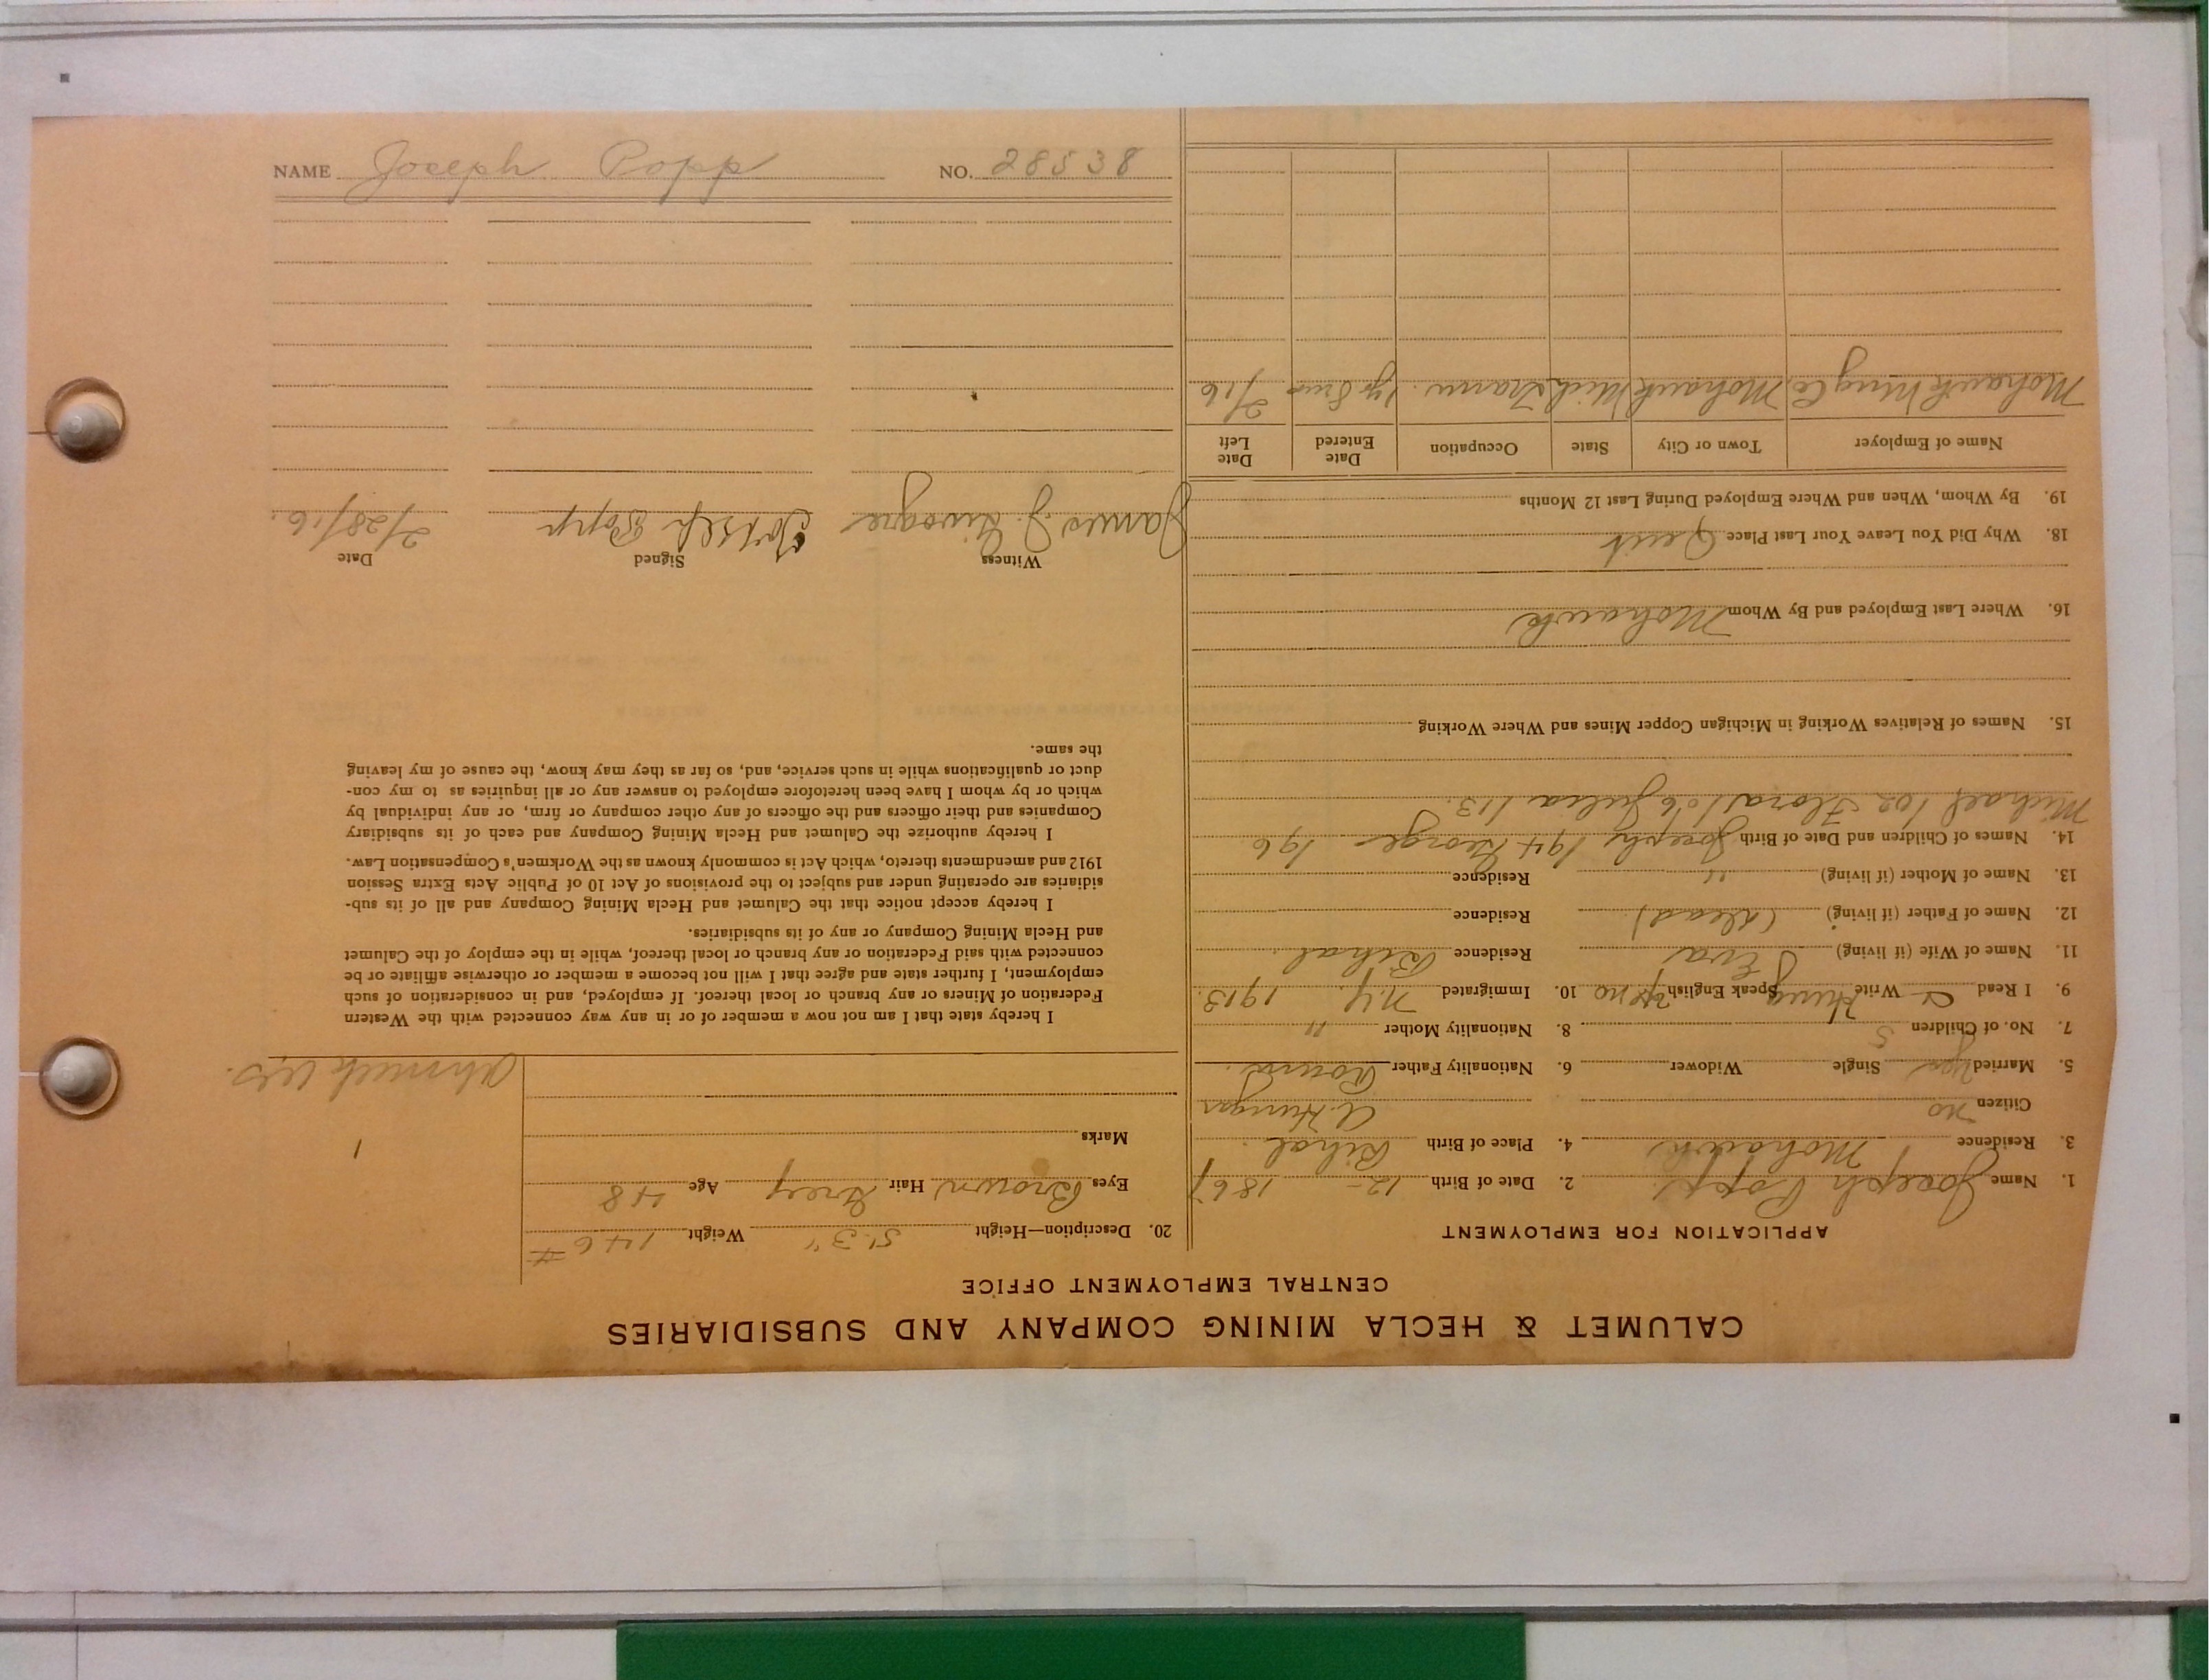 CALUMET & HECLA MINING COMPANY AND SUBSIDIARIES
CENTRAL EMPLOYMENT OFFICE
APPLICATION FOR EMPLOYMENT
1. Name Joseph Popp 2. Date of Birth 12- 1867
3. Residence Mohawk 4. Place of Birth Bihal.
Citizen no A. Hungar
5. Married yes Single Widower 6. Nationality Father Roum.
7. No. of Children 5 8. Nationality Mother "
9. I Read & Write Hung Speak English no 10. Immigrated N.Y. 1913.
11. Name of Wife (if living) Eva Residence Bihal.
12. Name of Father (if living) (dead) Residence
13. Name of Mother (if living) " Residence
14. Names of Children and Date of Birth Joseph 194 George 196
Michael 102 Flora 106 Julia 113.
15. Names of Relatives Working in Michigan Copper Mines and Where Working
16. Where Last Employed and By Whom Mohawk
18. Why Did You Leave Your Last Place Quit
19. By Whom, When and Where Employed During Last 12 Months
Name of Employer Town or City State Occupation Date Entered Date Left
Mohawk Ming Co. Mohawk Mich Tram. 1 yr 8 mo 2/16
20. Description—Height 5' 3" Weight 146 #
Eyes Brown Hair Grey Age 48
Marks
1
Ahmeek
I hereby state that I am not now a member of or in any way connected with the Western
Federation of Miners or any branch or local thereof. If employed, and in consideration of such
employment, I further state and agree that I will not become a member or otherwise affiliate or be
connected with said Federation or any branch or local thereof, while in the employ of the Calumet
and Hecla Mining Company or any of its subsidiaries.
I hereby accept notice that the Calumet and Hecla Mining Company and all of its sub-
sidiaries are operating under and subject to the provisions of Act 10 of Public Acts Extra Session
1912 and amendments thereto, which Act is commonly known as the Workmen's Compensation Law.
I hereby authorize the Calumet and Hecla Mining Company and each of its subsidiary
Companies and their officers and the officers of any other company or firm, or any individual by
which or by whom I have been heretofore employed to answer any or all inquiries as to my con-
duct or qualifications while in such service, and, so far as they may know, the cause of my leaving
the same.
Witness Signed Date
James J. Joseph Popp 2/28/16.
NAME Joseph Popp NO. 28538